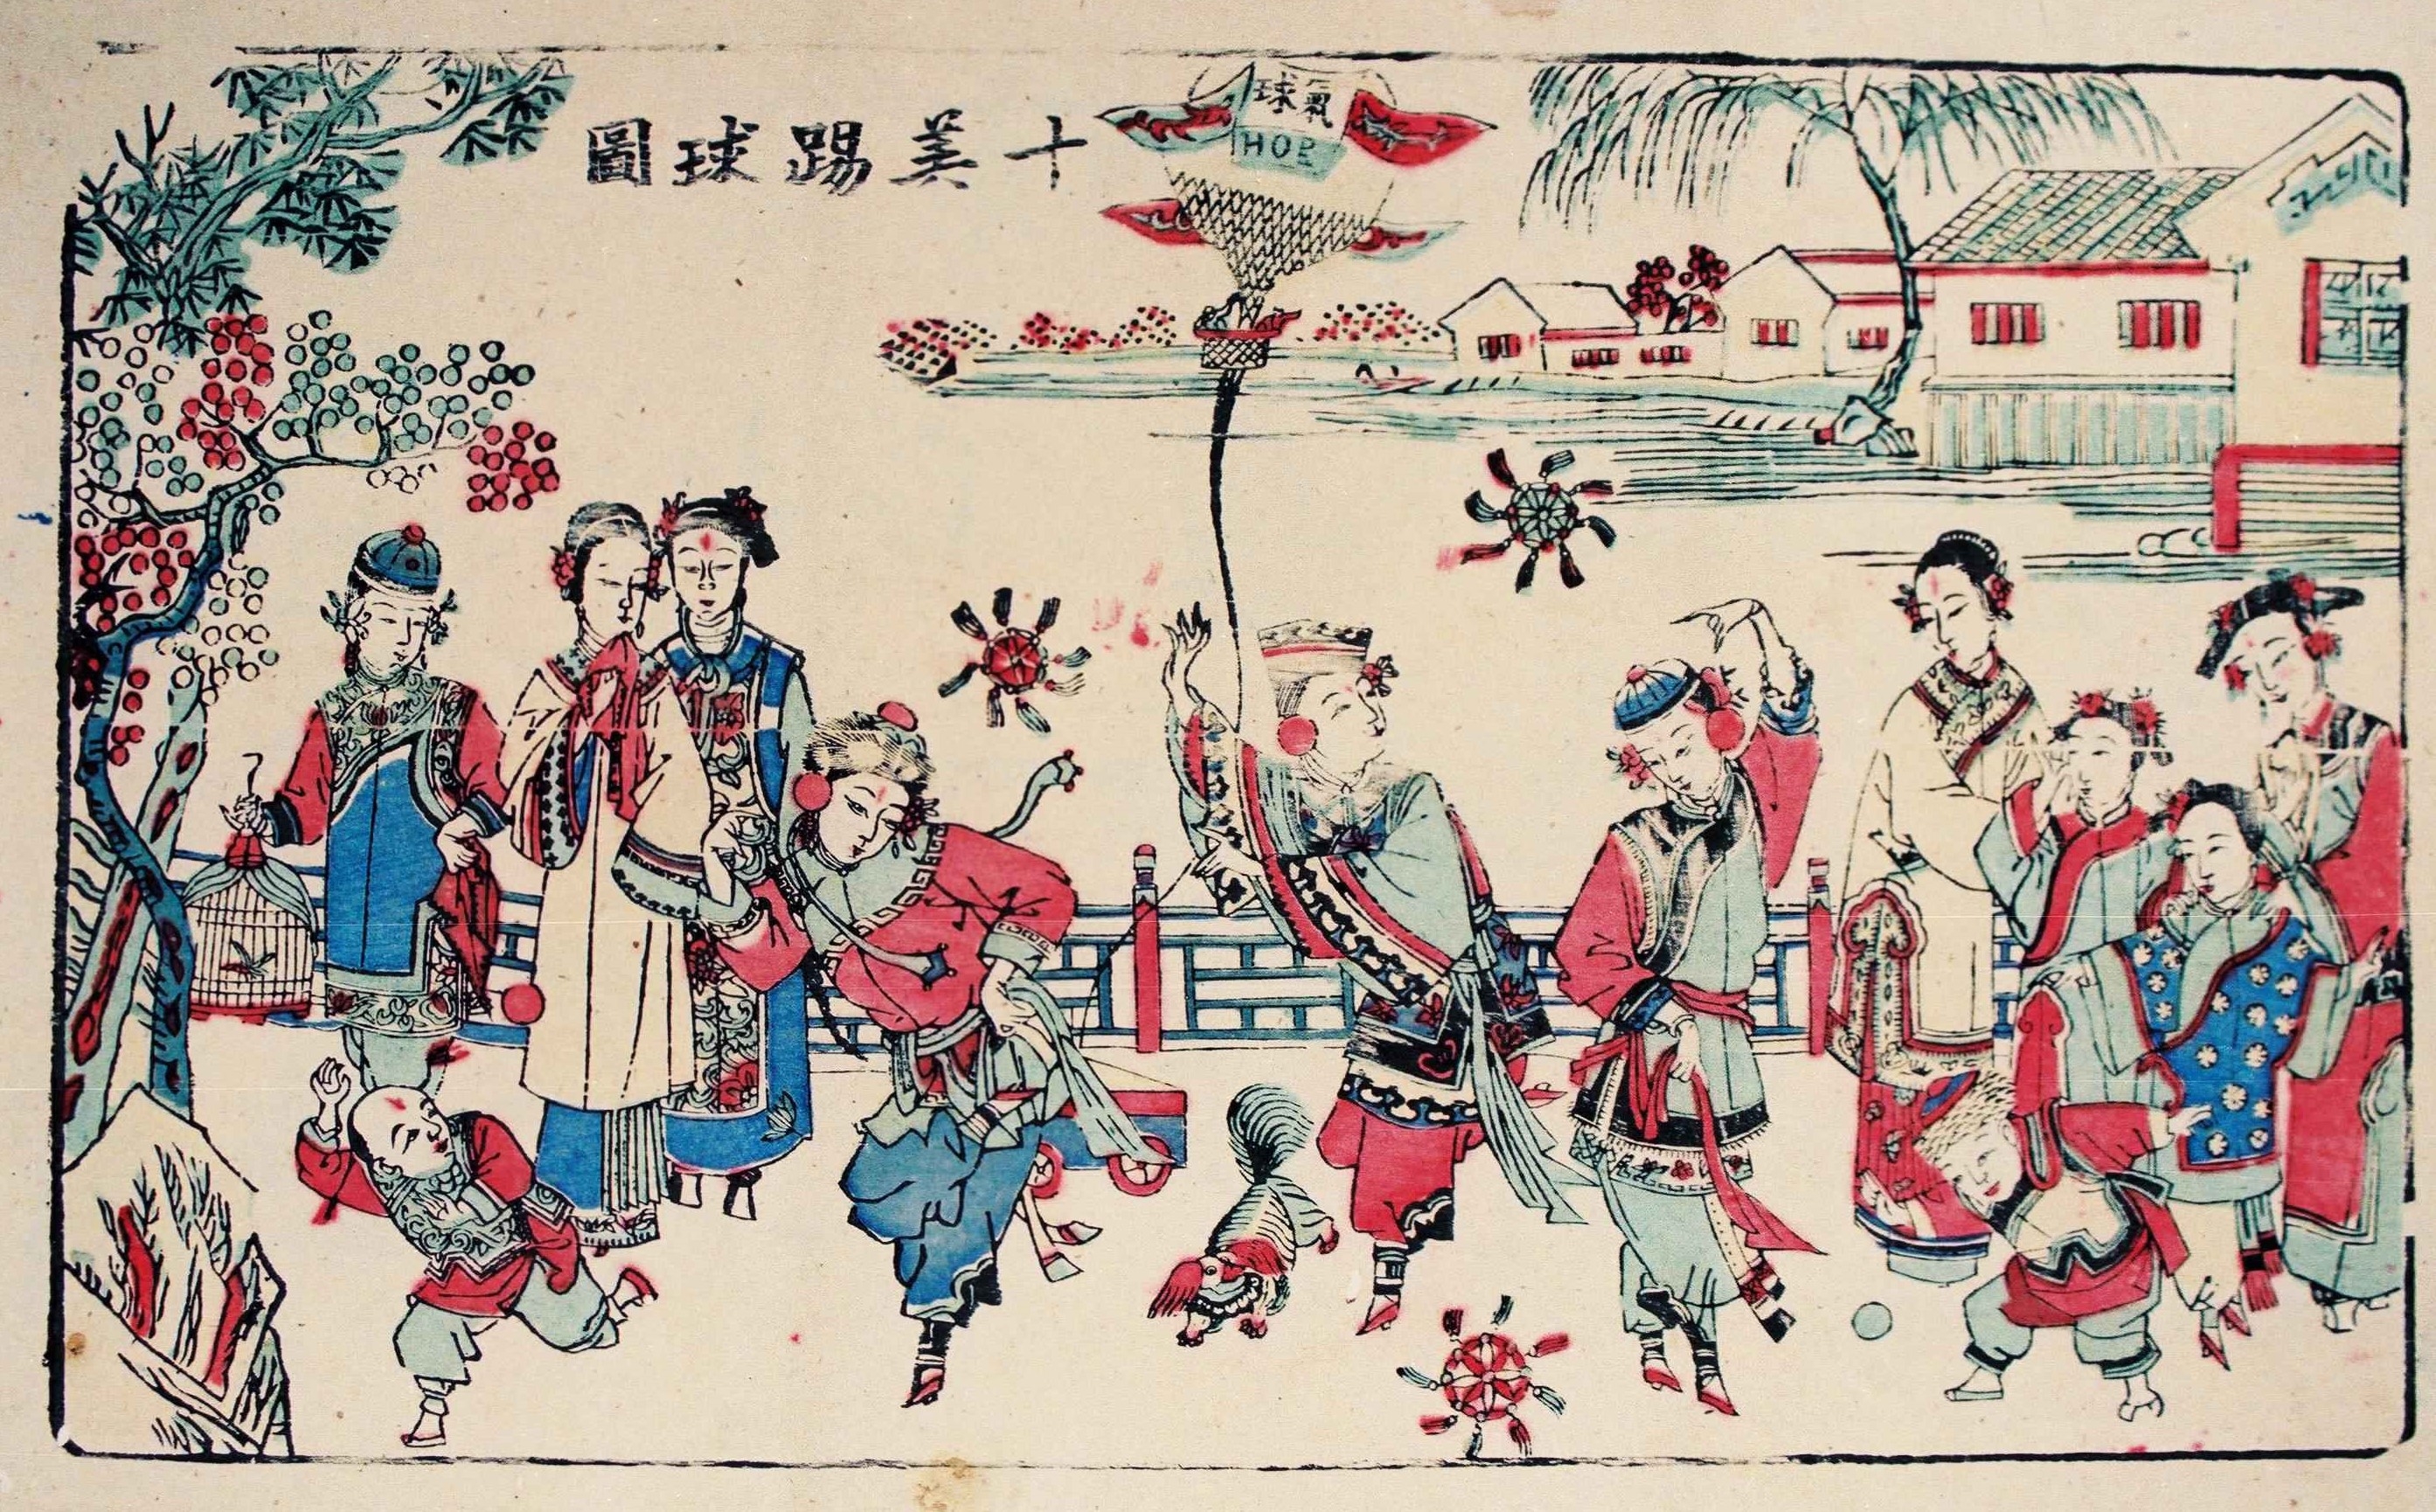 十美踢球圖
氣球
HOE